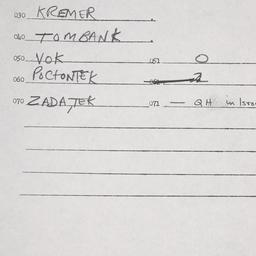 030 KREMER
040 TOMBANK
050 VOK 051 O
060 POCTONTEK
070 ZADATEK 071 — QH in Isra